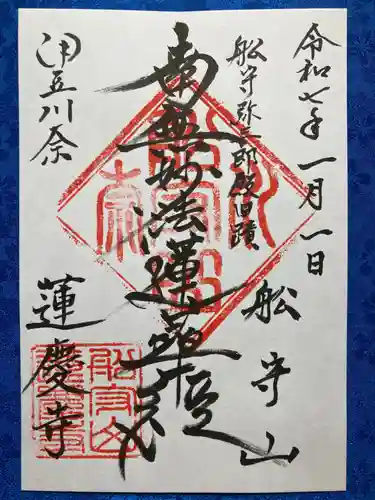 令和七年一月一日
船守弥三郎殿旧蹟
船守山
南無妙法蓮華経
伊豆川奈
蓮慶寺